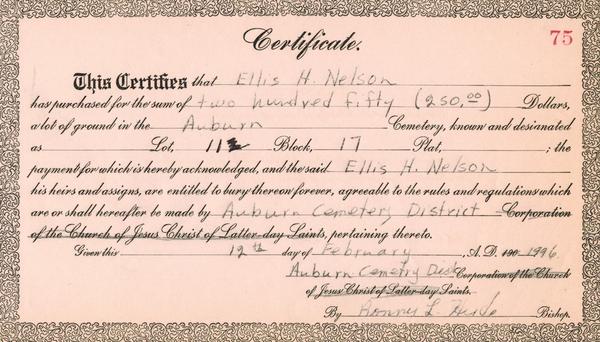 75
Certificate.
This Certifies that Ellis H. Nelson
has purchased for the sum of two hundred fifty (250.00) Dollars,
a lot of ground in the Auburn Cemetery, known and designated
as Lot, 112 Block, 17 Plat, ; the
payment for which is hereby acknowledged, and the said Ellis H. Nelson
his heirs and assigns, are entitled to bury thereon forever, agreeable to the rules and regulations which
are or shall hereafter be made by Auburn Cemetery District Corporation
of the Church of Jesus Christ of Latter-day Saints, pertaining thereto.
Given this 12th day of February, A.D. 190 1996
Auburn Cemetery Dist Corporation of the Church
of Jesus Christ of Latter-day Saints.
By L. Bishop.